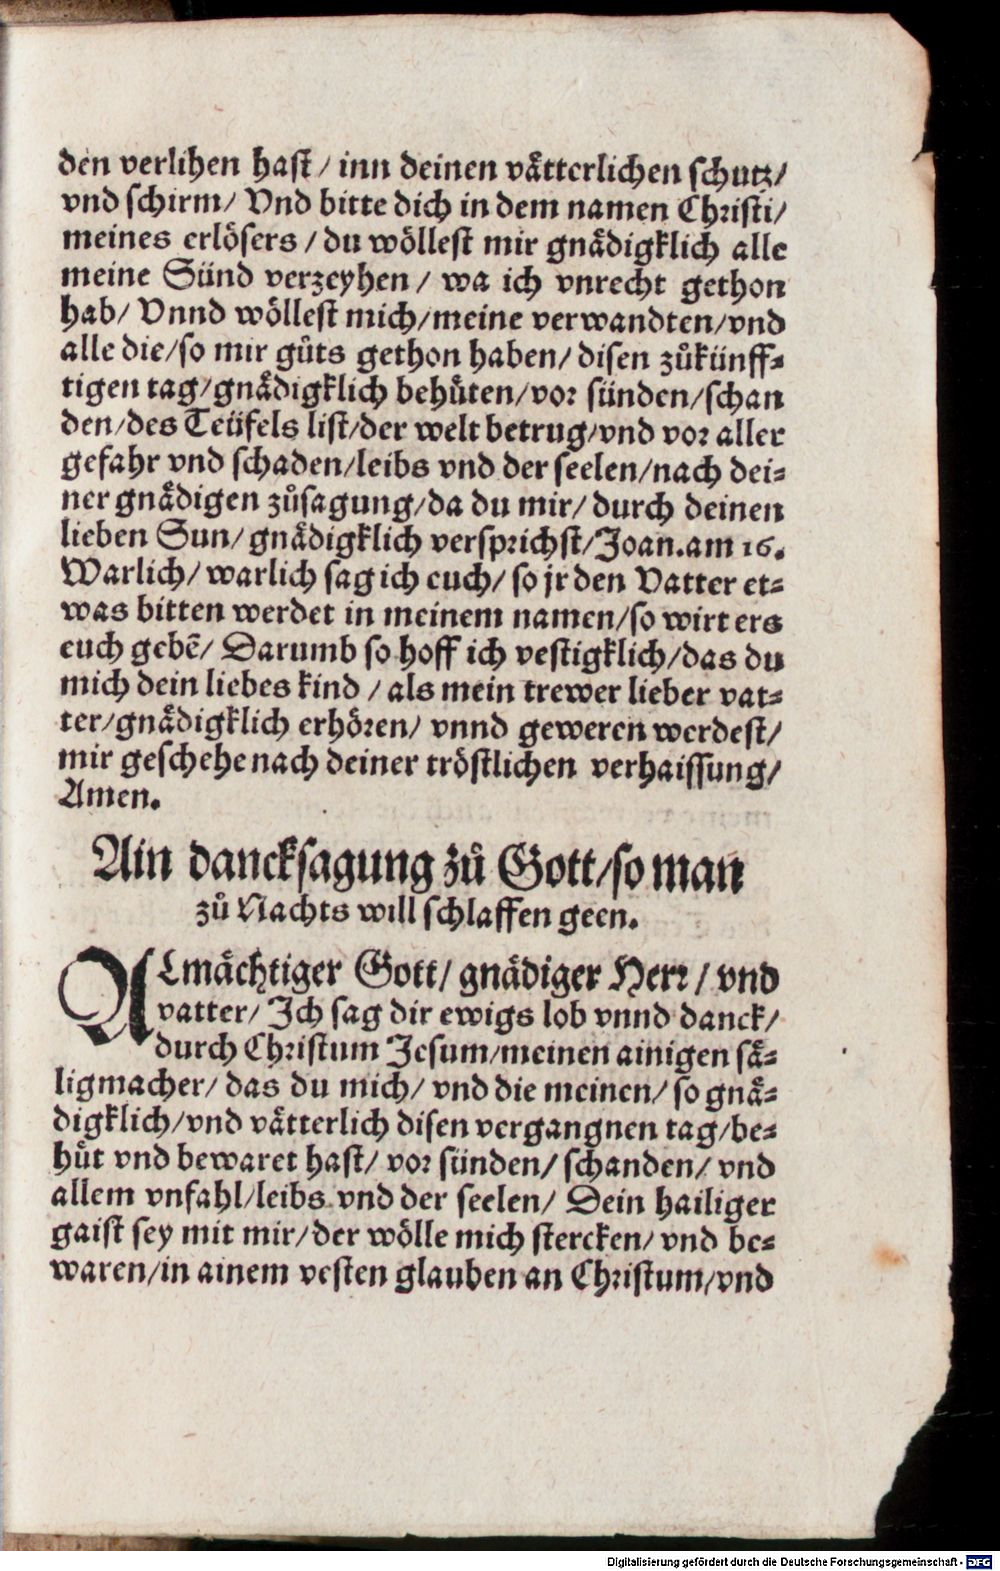 den verlihen hast / inn deinen vätterlichen schutz/
vnd schirm/ Vnd bitte dich in dem namen Christi/
meines erlösers / du wöllest mir gnädigklich alle
meine Sünd verzeyhen / wa ich vnrecht gethon
hab/ Vnnd wöllest mich/meine verwandten/vnd
alle die/so mir gůts gethon haben/ disen zůkünff⸗
tigen tag/gnädigklich behüten/vor sünden/schan
den/des Teüfels list/der welt betrug/vnd vor aller
gefahr vnd schaden/leibs vnd der seelen/nach dei⸗
ner gnädigen zůsagung/da du mir/ durch deinen
lieben Sun/ gnädigklich versprichst/Joan.am 16.
Warlich/ warlich sag ich euch/ so jr den Vatter et⸗
was bitten werdet in meinem namen/so wirt ers
euch gebẽ/ Darumb so hoff ich vestigklich/das du
mich dein liebes kind / als mein trewer lieber vat⸗
ter/gnädigklich erhören/ vnnd geweren werdest/
mir geschehe nach deiner tröstlichen verhaissung/
Amen.
Ain dancksagung zů Gott/so man
zů Nachts will schlaffen geen.
ALmächtiger Gott/ gnädiger Herr/ vnd
vatter/ Ich sag dir ewigs lob vnnd danck/
durch Christum Jesum/meinen ainigen sä⸗
ligmacher/ das du mich/ vnd die meinen/ so gnä⸗
digklich/vnd vätterlich disen vergangnen tag/be⸗
hüt vnd bewaret hast/ vor sünden/ schanden/ vnd
allem vnfahl/leibs vnd der seelen/ Dein hailiger
gaist sey mit mir/der wölle mich stercken/ vnd be⸗
waren/in ainem vesten glauben an Christum/vnd
Digitalisierung gefördert durch die Deutsche Forschungsgemeinschaft - DFG